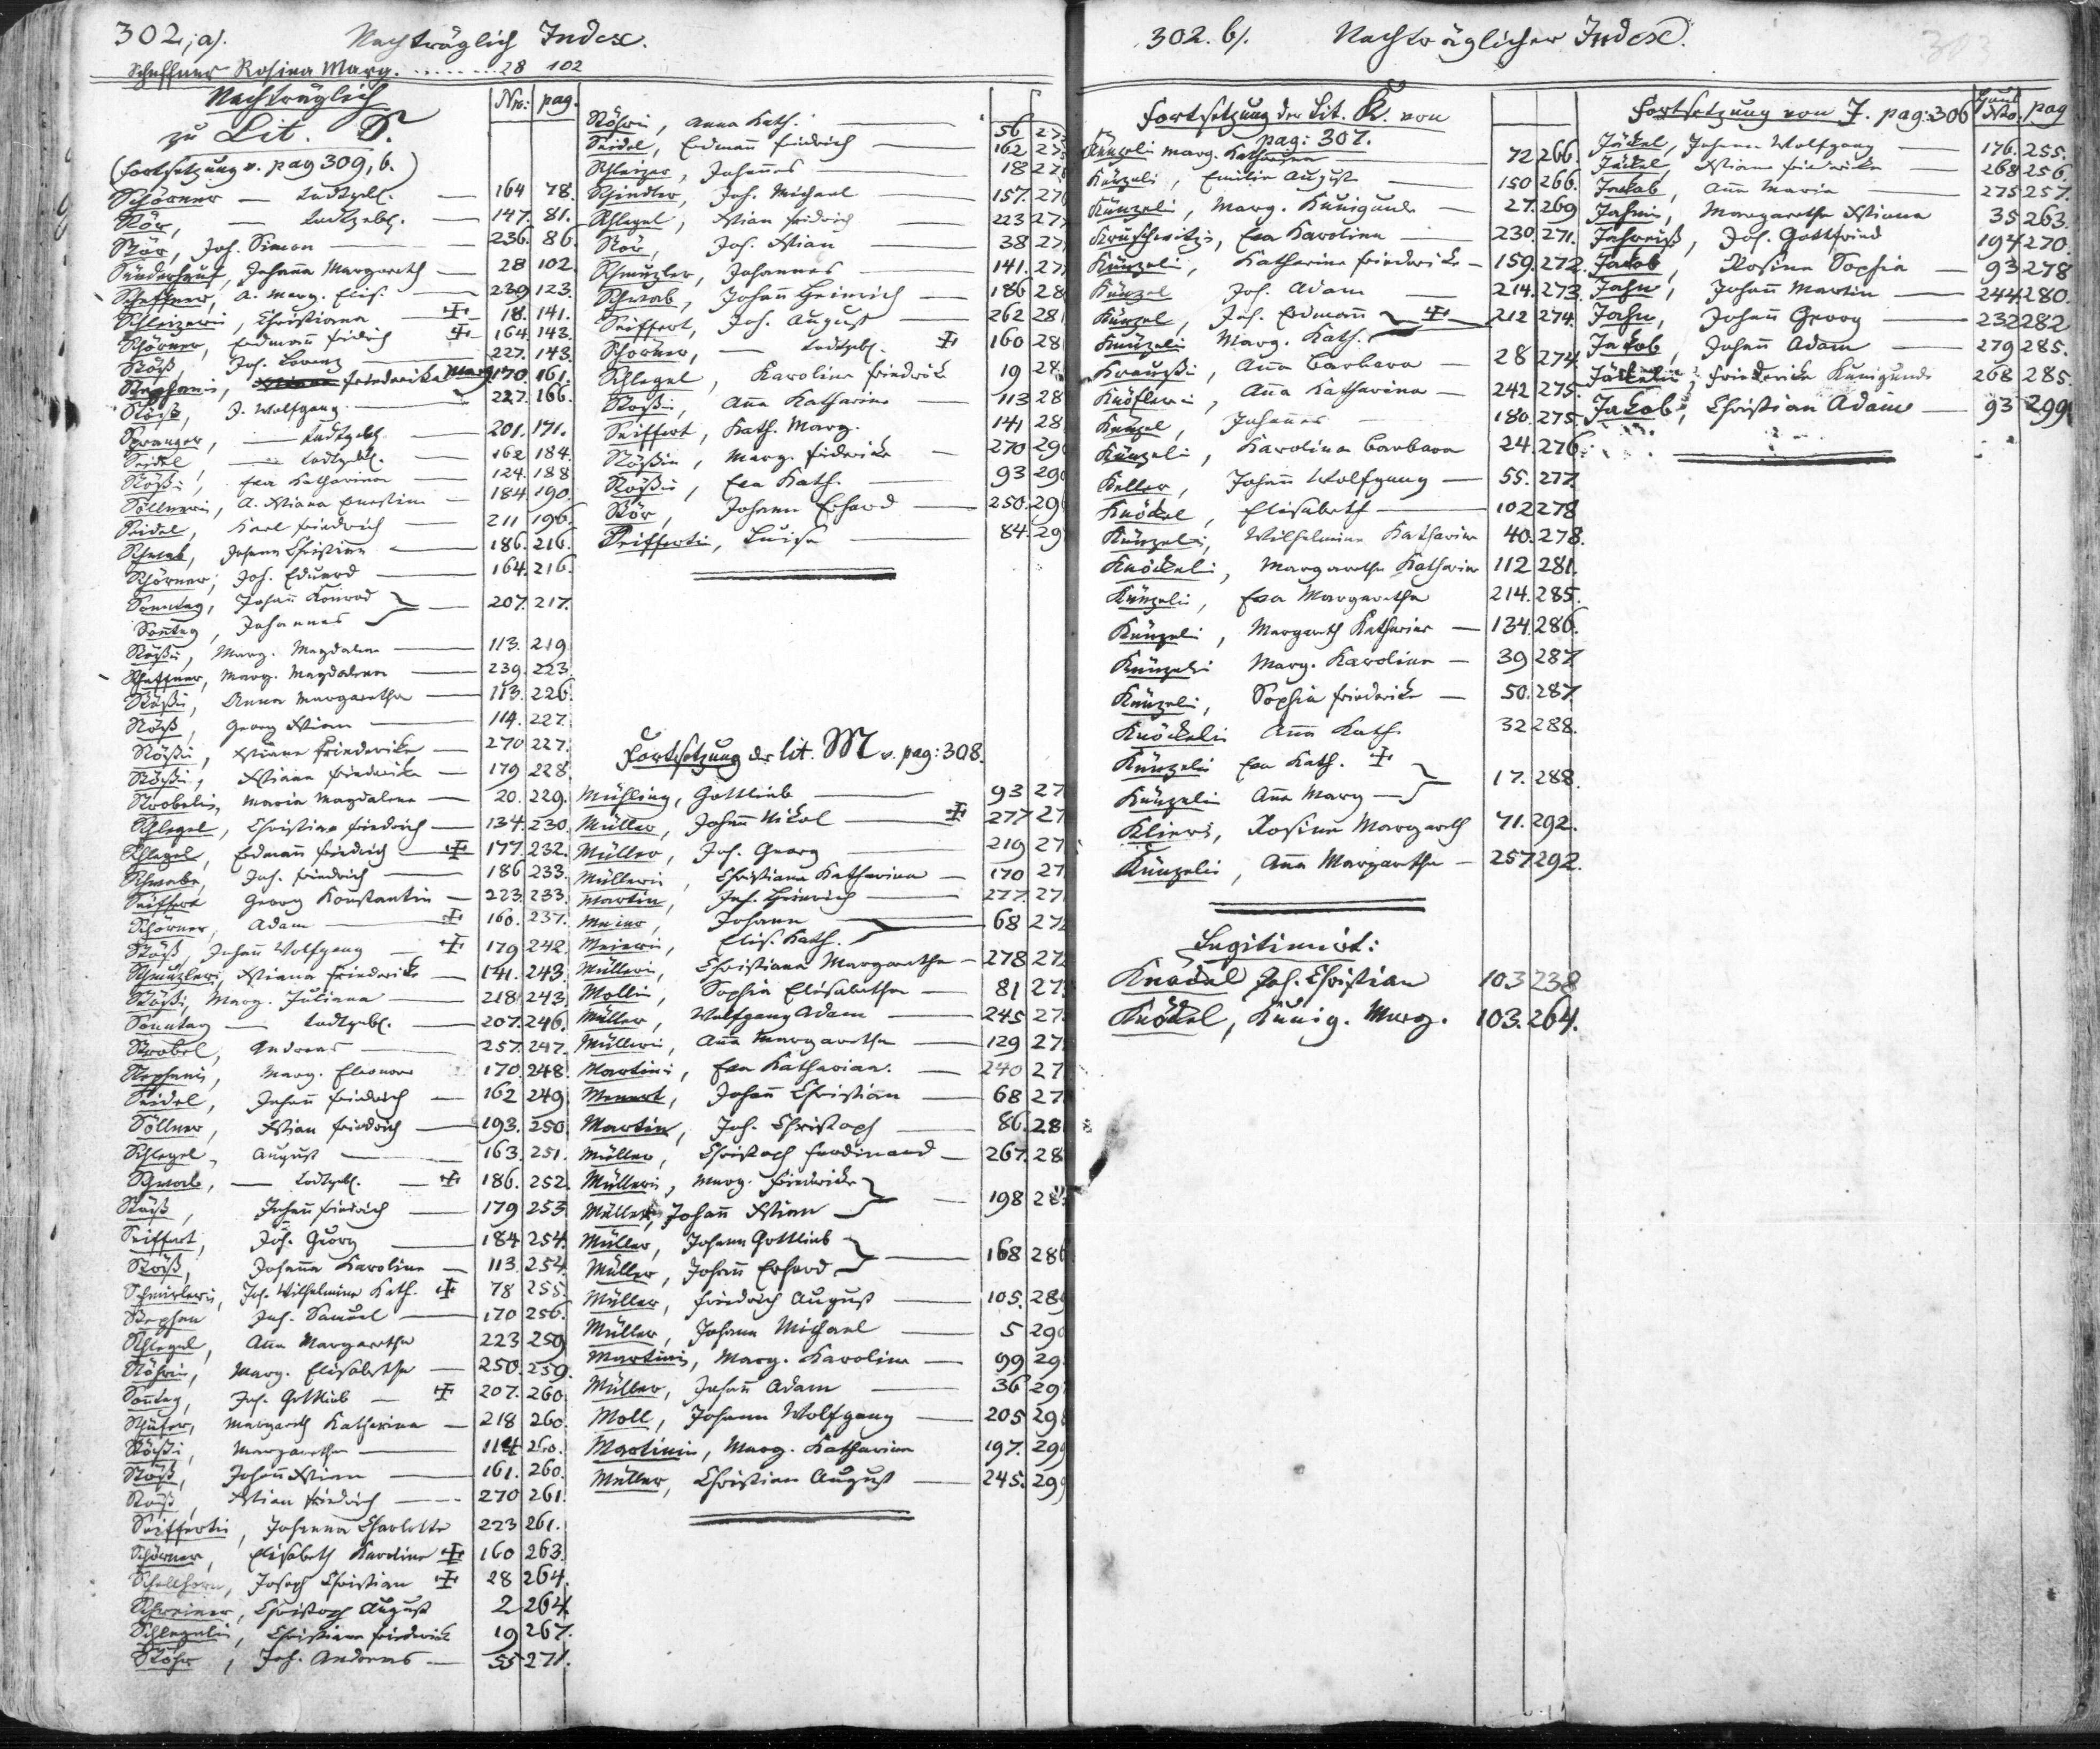 302, a).
Nachträglich Index.
Scheffner Rosina Marg. ....... 28 102
Nachträglich
zu Lit. S.
Nro: pag.
(Fortsetzung v. pag 309, b.)
Schörner — todtgeb. — 164 78.
Stör, — todtgeb. — 147. 81.
Stör, Joh. Simon — 236. 86.
Sünderhauf, Johanna Margareth — 28 102.
Scheffner, A. Marg. Elis. — 239 123.
Schleizeri, Christiana — 18. 141.
Schörner, Erdmann Friedrich 164. 143.
Stöß, Joh. Lorenz 227. 143.
Stephani, Friederika Marg. 170. 161.
Stöß, J. Wolfgang — 227. 166.
Spranger, — todtgeb. 201. 171.
Seidel, — todtgeb. — 162 184.
Stößi, Eva Katharina — 124. 188
Söllneri, A. Xstiana Ernestin — 184. 190.
Seidel, Karl Friedrich — 211 196.
Schwab, Johann Christian — 186. 216.
Schörner, Joh. Eduard — 164. 216.
Sonntag, Johann Konrad } — 207. 217.
Sonntag, Johannes
Stößi, Marg. Magdalena — 113. 219
Scheffner, Marg. Magdalena — 239. 223.
Stößi, Anna Margaretha — 113. 226.
Stöß, Georg Xstian — 114. 227.
Stößi, Xstiane Friederike — 270 227.
Stößi, Xstiana Friederika — 179 228
Strobelin, Maria Magdalena — 20. 229.
Schlegel, Christian Friedrich — 134. 230.
Schlegel, Erdmann Friedrich — 177. 232.
Schwabe, Joh. Friedrich — 186 233.
Seiffert Georg Konstantin — 223. 233.
Schörner, Adam — 160. 237.
Stöß, Johann Wolfgang — 179 242.
Schmuzleri, Xstiana Friederike — 141. 243.
Stößi, Marg. Juliana — 218. 243.
Sonntag — todtgeb. — 207. 246.
Strobel, Andreas — 257. 247.
Stephani, Marg. Eleonore 170. 248.
Seidel, Johann Friedrich — 162 249.
Söllner, Xstian Friedrich — 193. 250.
Schlegel, August — 163. 251.
Schwab, — todtgeb. — 186. 252.
Stöß, Johann Friedrich — 179 253
Seiffert, Joh. Georg — 184 254.
Stöß, Johanna Karoline — 113. 254.
Joh. Wilhelmine Kath. 78 255.
Stephan Joh. Samuel — 170 256.
Schlegel, Anna Margaretha 223 259
Stöhrin, Marg. Elisabetha — 250. 259.
Sonntag, Joh. Gottlieb — 207. 260
Schäfer, Margareth Katharina — 218 260.
Stößi, Margaretha — 114 260.
Stöß, Johann Xstian — 161. 260.
Stöß, Xstian Friedrich — 270 261.
Seiffertin, Johanna Charlotte 223 261.
Schörner, Elisabeth Karoline 160 263
Schellhorn, Joseph Christian 28 264.
Schreiner, Christoph August 2 264
Schlegelin, Christiana Friederick 19 267.
Stöhr, Joh. Andreas — 55 271.
Stöhrin, Anna Kath. — 56 27
Seidel, Erdmann Friedrich — 162 27
Schleizer, Johannes — 18 27
Schindler, Joh. Michael — 157. 27
Schlegel, Xstian Friedrich — 223 27
Stör, Joh. Xstian — 38 27
Schmuzler, Johannes — 141. 27
Schwab, Johann Heinrich — 186 28
Seiffert, Joh. August — 262 28
Schörner, — todtgeb. 160 28
Schlegel, Karolina Friedrike 19 28
Stößin, Anna Katharina — 113 28
Seiffert, Kath. Marg. 141 28
Stößin, Marg. Friederike — 270 29
Stößin, Eva Kath. — 93 29
Stör, Johann Erhard — 250. 29
Seiffertin, Luise — 84. 29
Fortsetzung der lit. M v. pag: 308.
Mühling, Gottlieb — 93 27
Müller, Johann Nikol — 277 27
Müller, Joh. Georg — 219 27
Müllerin, Christiana Katharina — 170 27
Martin, Joh. Heinrich — 277. 27
Meier, Johann — 68 27
Meierin, Elis. Kath.
Müllerin, Christiana Margaretha — 278 27
Mollin, Sophia Elisabetha — 81 27
Müller, Wolfgang Adam — 245 27
Müllerin, Anna Margaretha — 129 27
Martini, Eva Katharina. — 240 27
Johann Christian — 68 27
Martin, Joh. Christoph — 86. 28
Müller, Christoph Ferdinand — 267. 28
Müllerin, Marg. Friederike } — 198 28
Müller, Johann Xstian
Müller, Johann Gottlieb } — 168 286
Müller, Johann Erhard
Müller, Friedrich August — 105. 289
Müller, Johann Michael — 5 290
Martinin, Marg. Karolina — 99 29
Müller, Johann Adam — 36 29
Moll, Johann Wolfgang — 205 29
Martinin, Marg. Katharina 197. 299
Müller, Christian August — 245. 299
302. b).
Nachträglicher Index.
Fortsetzung der Lit. K. von
pag: 307.
Künzeli Marg. Katharina — 72 266.
Künzeli, Emilie Auguste — 150 266.
Künzeli, Marg. Kunigunde — 27. 269
Kruschwitzi, Eva Karolina — 230. 271.
Künzeli, Katharina Friedericke — 159. 272.
Künzel Joh. Adam — 214. 273.
Künzel, Joh. Erdmann } 212 274.
Künzeli Marg. Kath.
Kraußi, Anna Barbara — 28 274.
Knöfleri, Anna Katharina — 242 275.
Künzel, Johannes — 180. 275.
Künzeli, Karolina Barbara 24. 276.
Keller, Johann Wolfgang — 55. 277.
Knöckel, Elisabeth — 102 278
Künzeli, Wilhelmine Katharina 40. 278.
Knöckeli, Margaretha Katharina 112 281.
Künzeli, Eva Margaretha 214. 285.
Künzeli, Margareth Katharina — 134. 286.
Künzeli Marg. Karolina — 39 287.
Künzeli, Sophia Friederike — 50. 287.
Knöckeli Anna Kath. 32 288.
Künzeli Eva Kath. } 17. 288.
Künzeli Anna Marg —
Klieri, Rosina Margareth 71. 292.
Künzeli, Anna Margaretha — 257 292.
Legitimirt:
Knöckel Joh. Christian 103 238
Knöckel, Kunig. Marg. 103. 264.
Fortsetzung von J. pag: 306
Haus Nro. pag
Jäckel, Johann Wolfgang — 176. 255.
Jäckel, Xstiana Friedericke — 268 256.
Jakob, Anna Maria — 275 257.
Jahnin, Margaretha Xstiana 35 263.
Jahreiß, Joh. Gottfried 194 270.
Jakob, Rosina Sophia — 93 278
Jahn, Johann Martin — 244 280.
Jahn, Johann Georg — 232 282
Jakob, Johann Adam — 279 285.
Jäckelin, Friedericke Kunigunde 268 285.
Jakob, Christian Adam — 93 299